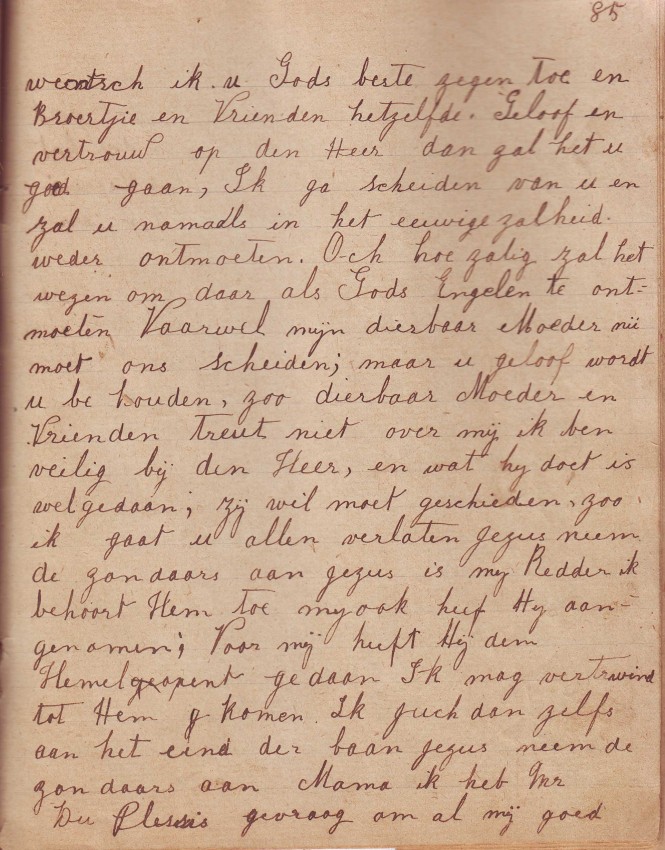 85
wentsch ik u Gods beste zegen toe en
Broertjie en Vrienden hetzelfde. Geloof en
vertrouw op den Heer dan zal het u
goed gaan, Ik ga scheiden van u en
zal u namaals in het eeuwige zalheid.
weder ontmoeten. Och hoe zalig zal het
wezen om daar als Gods Engelen te ont-
moeten Vaarwel mijn dierbaar Moeder nu
moet ons scheiden; maar u geloof wordt
u be houden, zoo dierbaar Moeder en
Vrienden treut niet over mij ik ben
veilig bij den Heer, en wat hy doet is
welgedaan; zij wil moet geschieden, zoo
ik gaat u allen verlaten Jezus neem
de zondaars aan Jezus is my Redder ik
behoort Hem toe my ook heef Hy aan-
genomen; Voor mij heeft Hij dem
Hemel geopent gedaan Ik mag
tot Hem komen. Ik juch dan zelfs
aan het eind der baan Jezus neem de
zondaars aan Mama ik heb Mr
Du Plessis gevraag om al mij goed